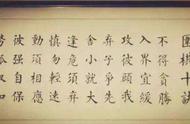 圍棋十訣
不得貪勝
入界宜緩
攻彼顧我
弃子爭先
舍小就大
逢危須弃
慎勿輕速
動須相應
彼强自保
勢孤取和